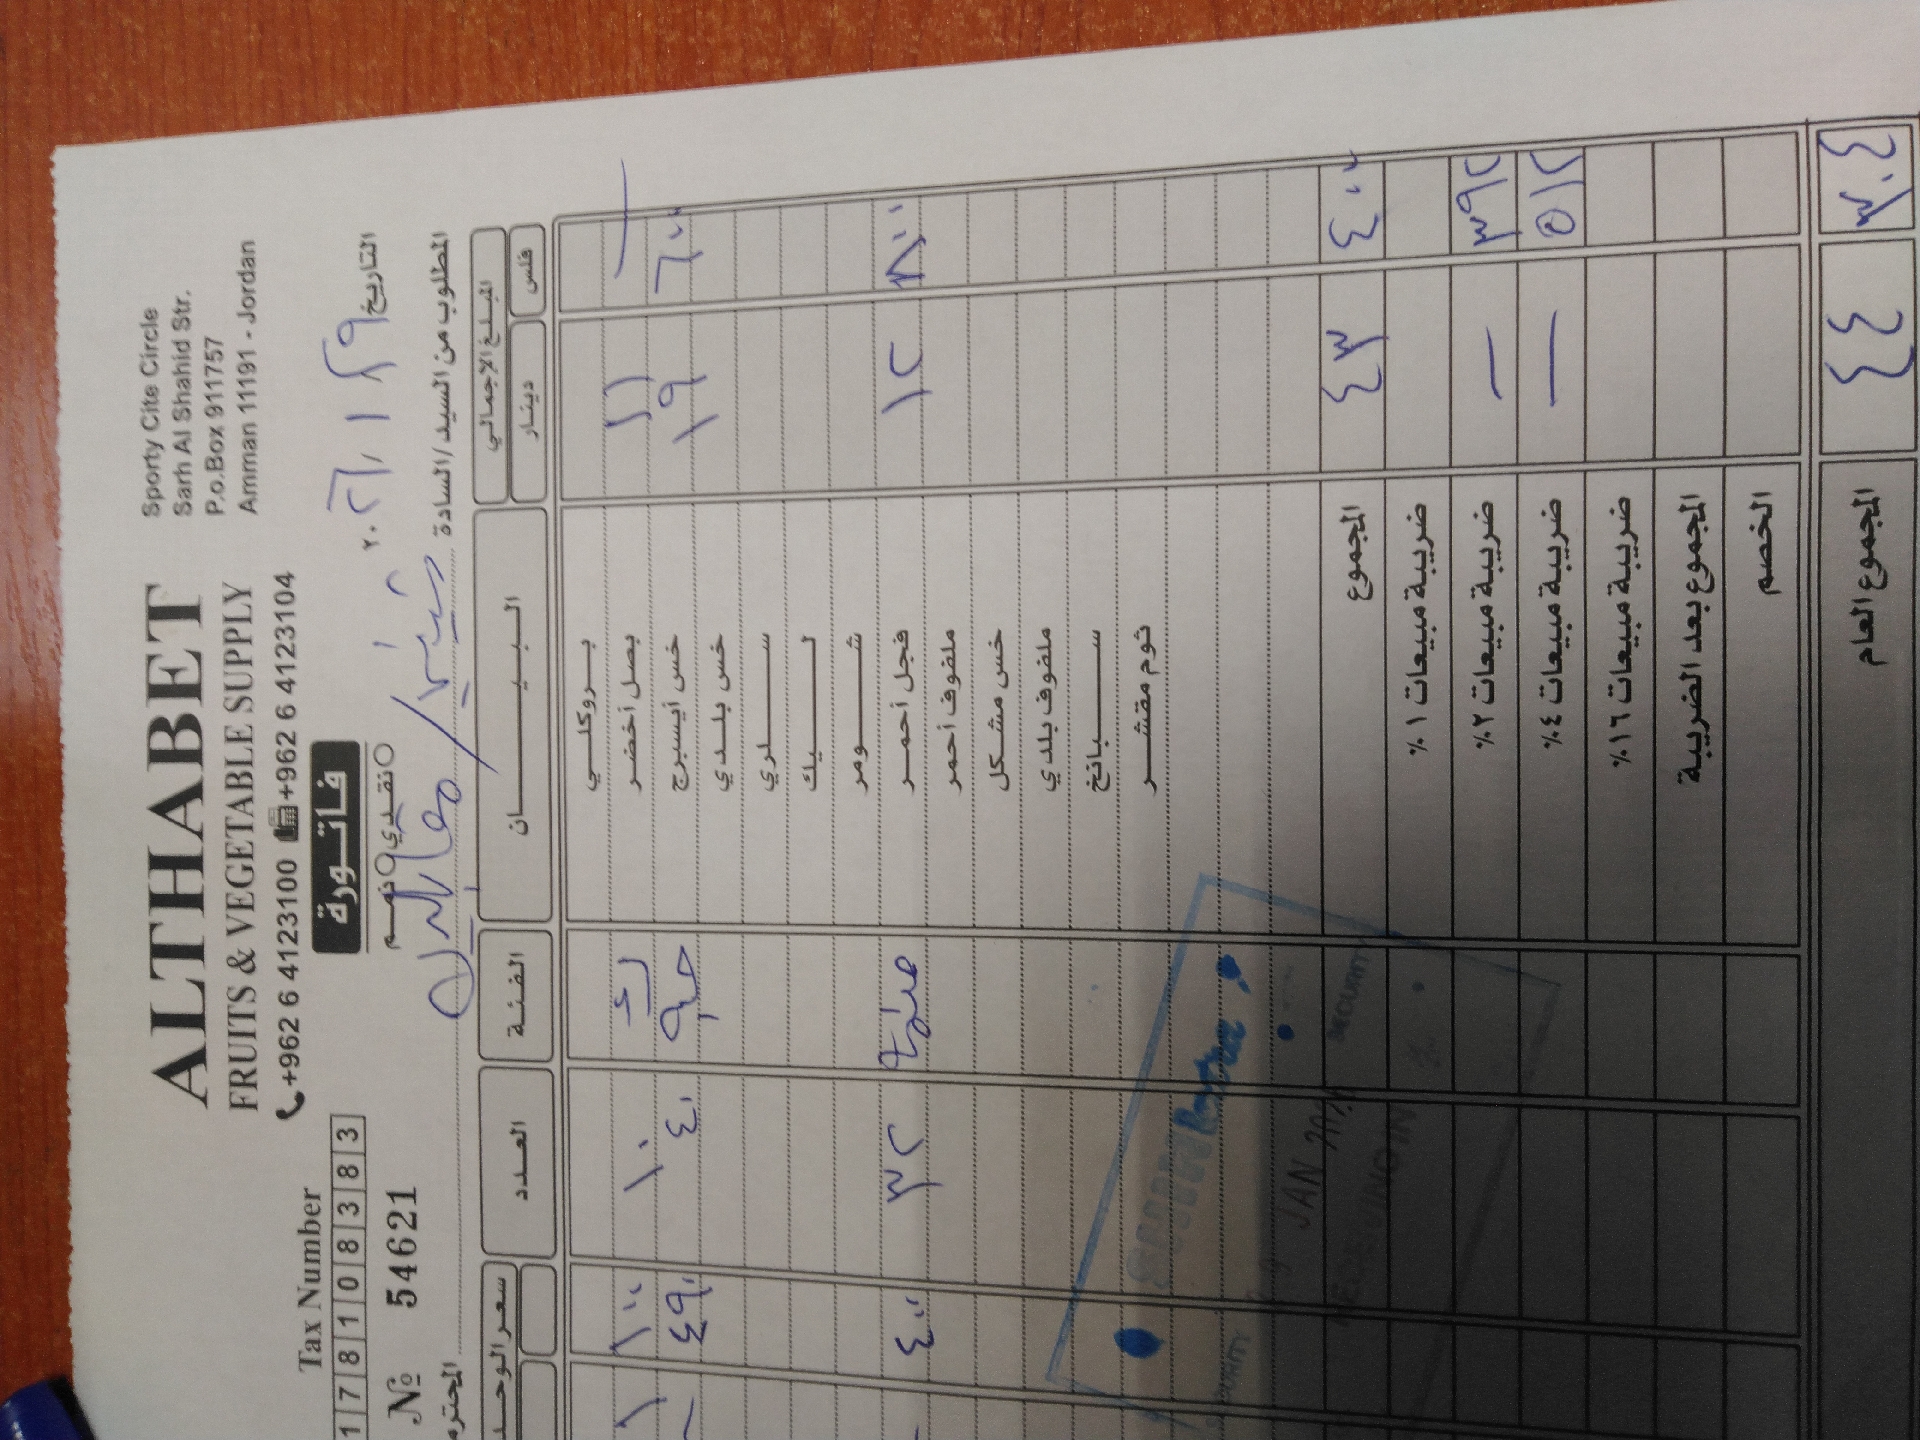 ALTHABET
FRUITS & VEGETABLE SUPPLY
+962 6 4123100 +962 6 4123104
Sporty Cite Circle
Sarh Al Shahid Str.
P.o.Box 911757
Amman 11191 - Jordan
Tax Number
1 7 8 1 0 8 3 8 3
№ 54621
فاتورة
نقدي ذمم
التاريخ ٢٩ / ١ / ٢٠٢٦
المطلوب من السيد/السادة
المحترم
المبلغ الإجمالي البيـــان الفئة العدد سعر الوحد
فلس دينار
بروكلي
— ١١ بصل أخضر ١٠ ١ ١٠٠
٦٠٠ ١٩ خس أيسبرج حبه ٤٠ ٤٩٠
خس بلدي
سلري
ليك
شومر
٨٠٠ ١٢ فجل أحمر ٣٢ ٤٠٠
ملفوف أحمر
خس مشكل
ملفوف بلدي
سبانخ
ثوم مقشر
المجموع ٤٣ ٤٠٠
ضريبة مبيعات ١٪
ضريبة مبيعات ٢٪ — ٣٩٢
ضريبة مبيعات ٤٪ — ٥١٢
ضريبة مبيعات ١٦٪
المجموع بعد الضريبة
الخصم
المجموع العام ٤٤ ٣٠٤
JAN